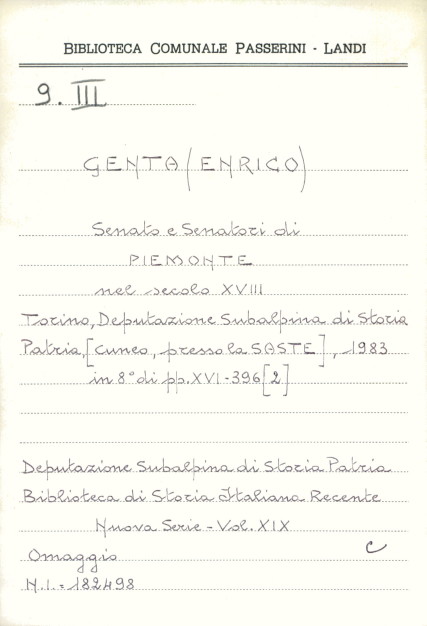 BIBLIOTECA COMUNALE PASSERINI - LANDI
9. III
GENTA (ENRICO)
Senato e Senatori di
PIEMONTE
nel secolo XVIII
Torino, Deputazione Subalpina di Storia
Patria, [Cuneo, presso la SASTE], 1983
in 8° di pp. XVI-396 [2]
Deputazione Subalpina di Storia Patria
Biblioteca di Storia Italiana Recente
Nuova Serie - Vol. XIX
Omaggio C
N.I. = 182498